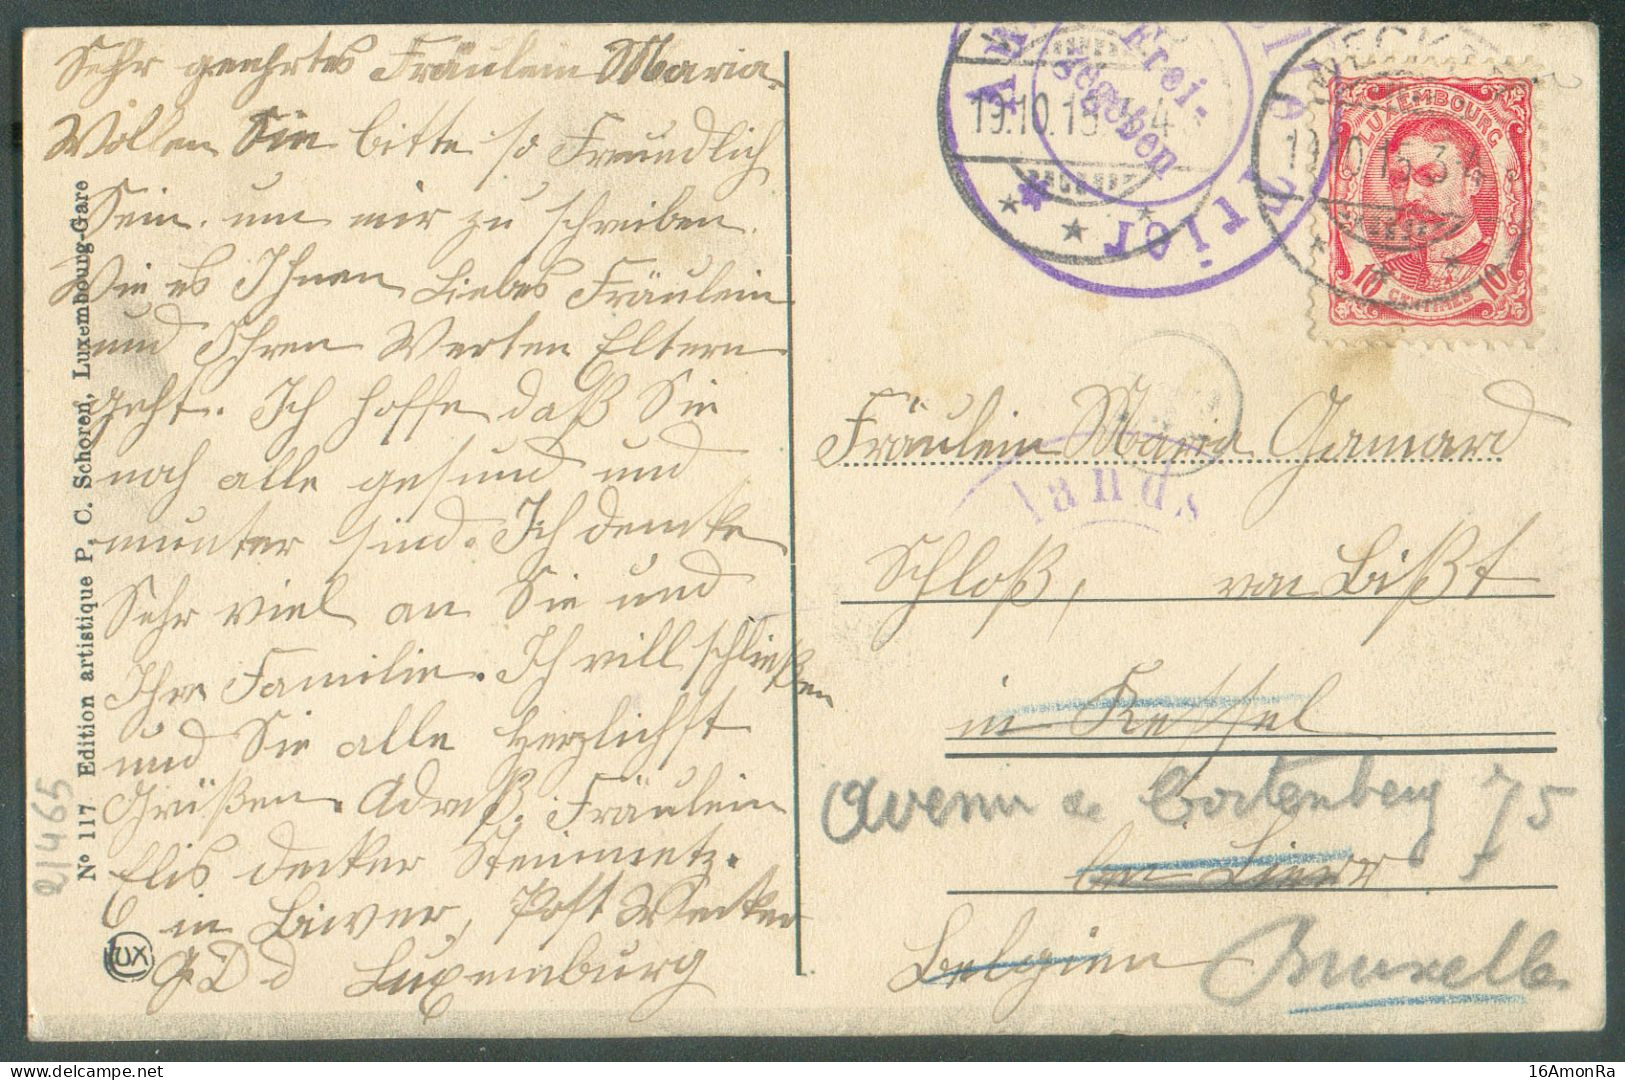 Sehr geehrtes Fräulein Maria
Wollen Sie bitte so Freundlich
Sein. um mir zu schreiben.
Wie es Ihnen Liebes Fräulein
und Ihren Werten Eltern
geht. Ich hoffe daß Sie
noch alle gesund und
munter sind. Ich demke
Sehr viel an Sie und
Ihre Familie. Ich will schließen
und Sie alle Herzlichst
Grüßen. Adreß. Fräulein
Elis decker Steinmetz.
in Biwer, Post Wecker
G D d Luxemburg
Nº 117 Edition artistique P. C. Schoren, Luxembourg-Gare
21465
LUX
Frei-
gegeben
Trier
19.10.15
WECKER
19.10.15 3-4
LUXEMBOURG
10 CENTIMES 10
Fräulein Maria Gamard
lands
Schloß, von Bißt
in Kessel
Avenue de Cortenberg 75
bei Lierr
Belgien Bruxelles
16AmonRa